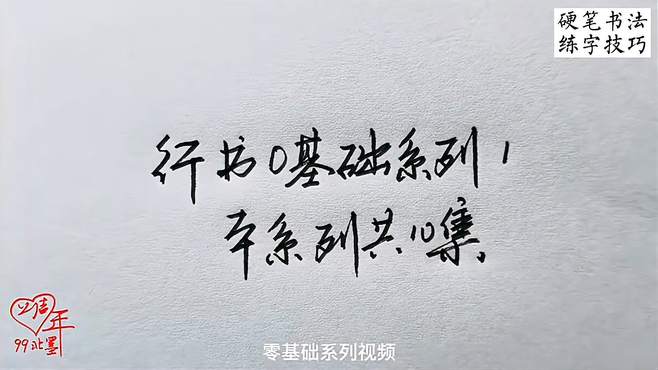 硬笔书法
练字技巧
行书0基础系列1
本系列共10集,
周年
99
零基础系列视频